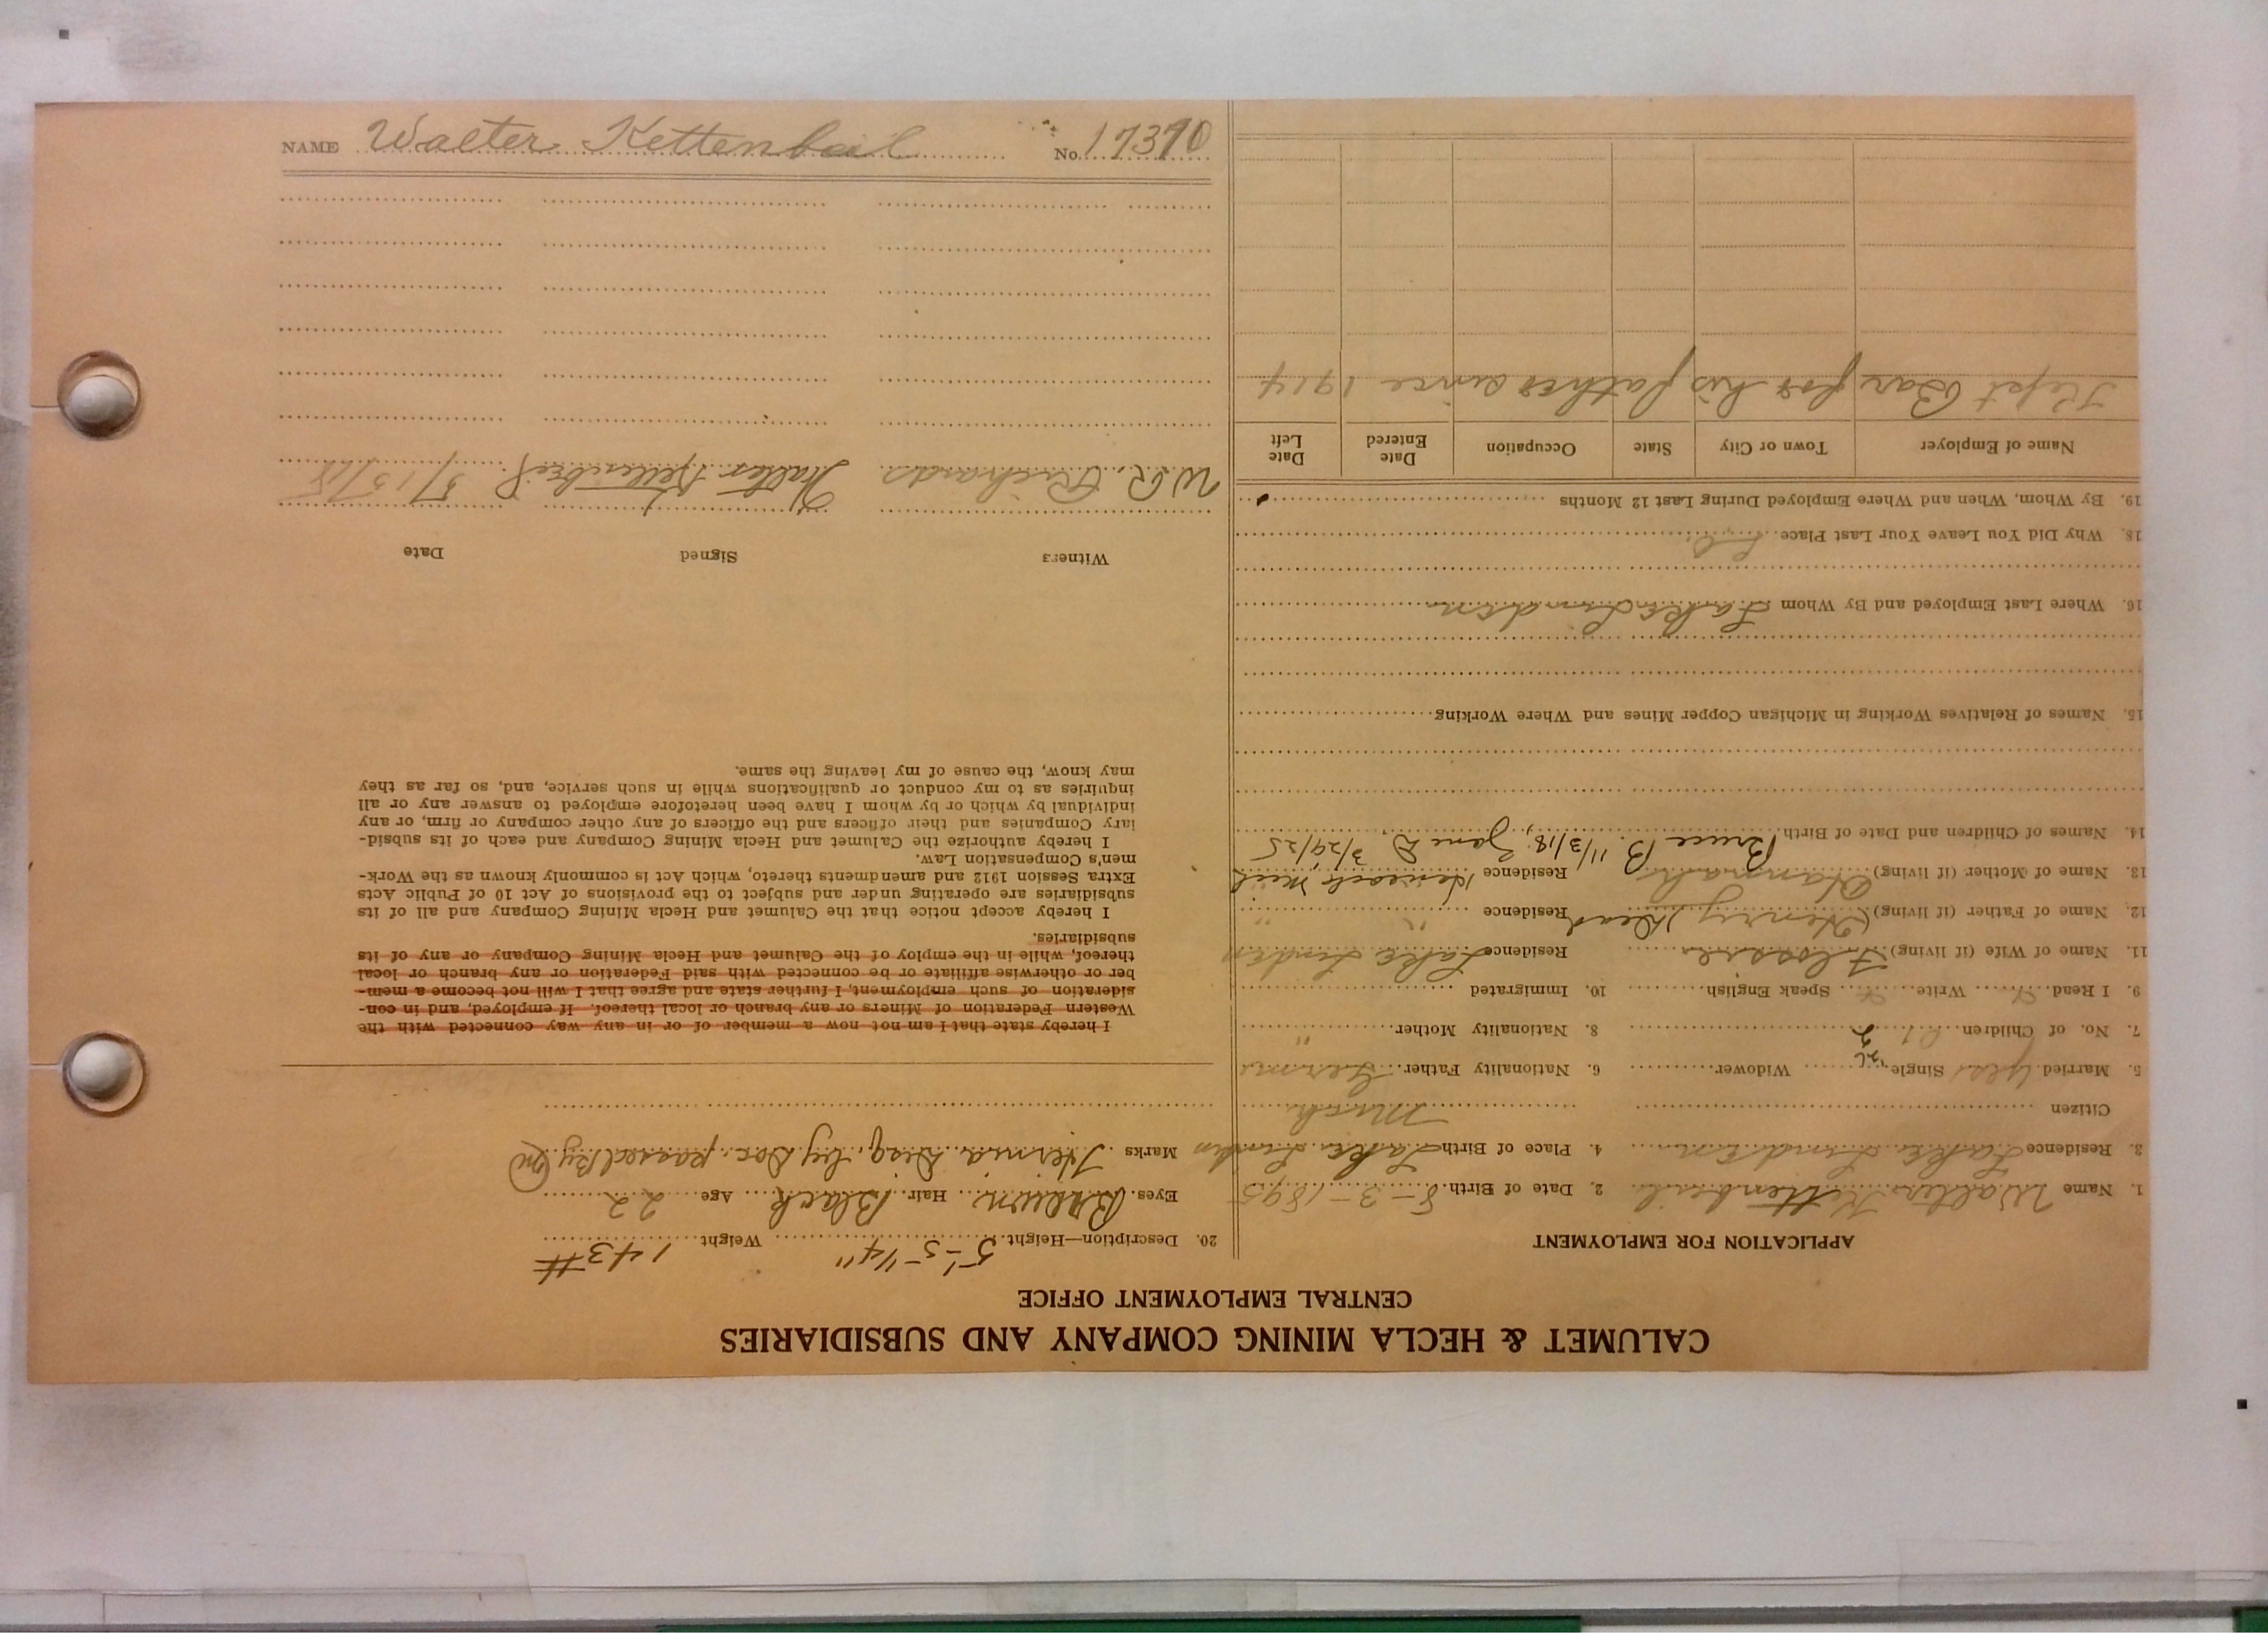 NAME Walter Kettenbeil No. 17370
CALUMET & HECLA MINING COMPANY AND SUBSIDIARIES
CENTRAL EMPLOYMENT OFFICE
APPLICATION FOR EMPLOYMENT
1. Name Walter Kettenbeil 2. Date of Birth 8-3-1895
3. Residence Lake Linden 4. Place of Birth Lake Linden
Citizen Mich
5. Married Yes Single Widower 6. Nationality Father Germ
7. No. of Children 1 2 8. Nationality Mother "
9. I Read Write Speak English 10. Immigrated
11. Name of Wife (if living) Flossie Residence Lake Linden
12. Name of Father (if living) (Henry) Dead Residence " "
13. Name of Mother (if living) Hannah Residence Mich
14. Names of Children and Date of Birth Bruce B. 11/3/18, Jane D 3/29/25
15. Names of Relatives Working in Michigan Copper Mines and Where Working
16. Where Last Employed and By Whom Lake Linden
18. Why Did You Leave Your Last Place
19. By Whom, When and Where Employed During Last 12 Months
Name of Employer Town or City State Occupation Date Entered Date Left
Kept Bar for his father since 1914
20. Description—Height 5'-5-1/4" Weight 143 #
Eyes Brown Hair Black Age 22
Marks Hernia Disq. by Doc. passed By
I hereby state that I am not now a member of or in any way connected with the
Western Federation of Miners or any branch or local thereof. If employed, and in con-
sideration of such employment, I further state and agree that I will not become a mem-
ber or otherwise affiliate or be connected with said Federation or any branch or local
thereof, while in the employ of the Calumet and Hecla Mining Company or any of its
subsidiaries.
I hereby accept notice that the Calumet and Hecla Mining Company and all of its
subsidiaries are operating under and subject to the provisions of Act 10 of Public Acts
Extra Session 1912 and amendments thereto, which Act is commonly known as the Work-
men's Compensation Law.
I hereby authorize the Calumet and Hecla Mining Company and each of its subsid-
iary Companies and their officers and the officers of any other company or firm, or any
individual by which or by whom I have been heretofore employed to answer any or all
inquiries as to my conduct or qualifications while in such service, and, so far as they
may know, the cause of my leaving the same.
Witness Signed Date
W.R. Richards Walter Kettenbeil 5/13/18